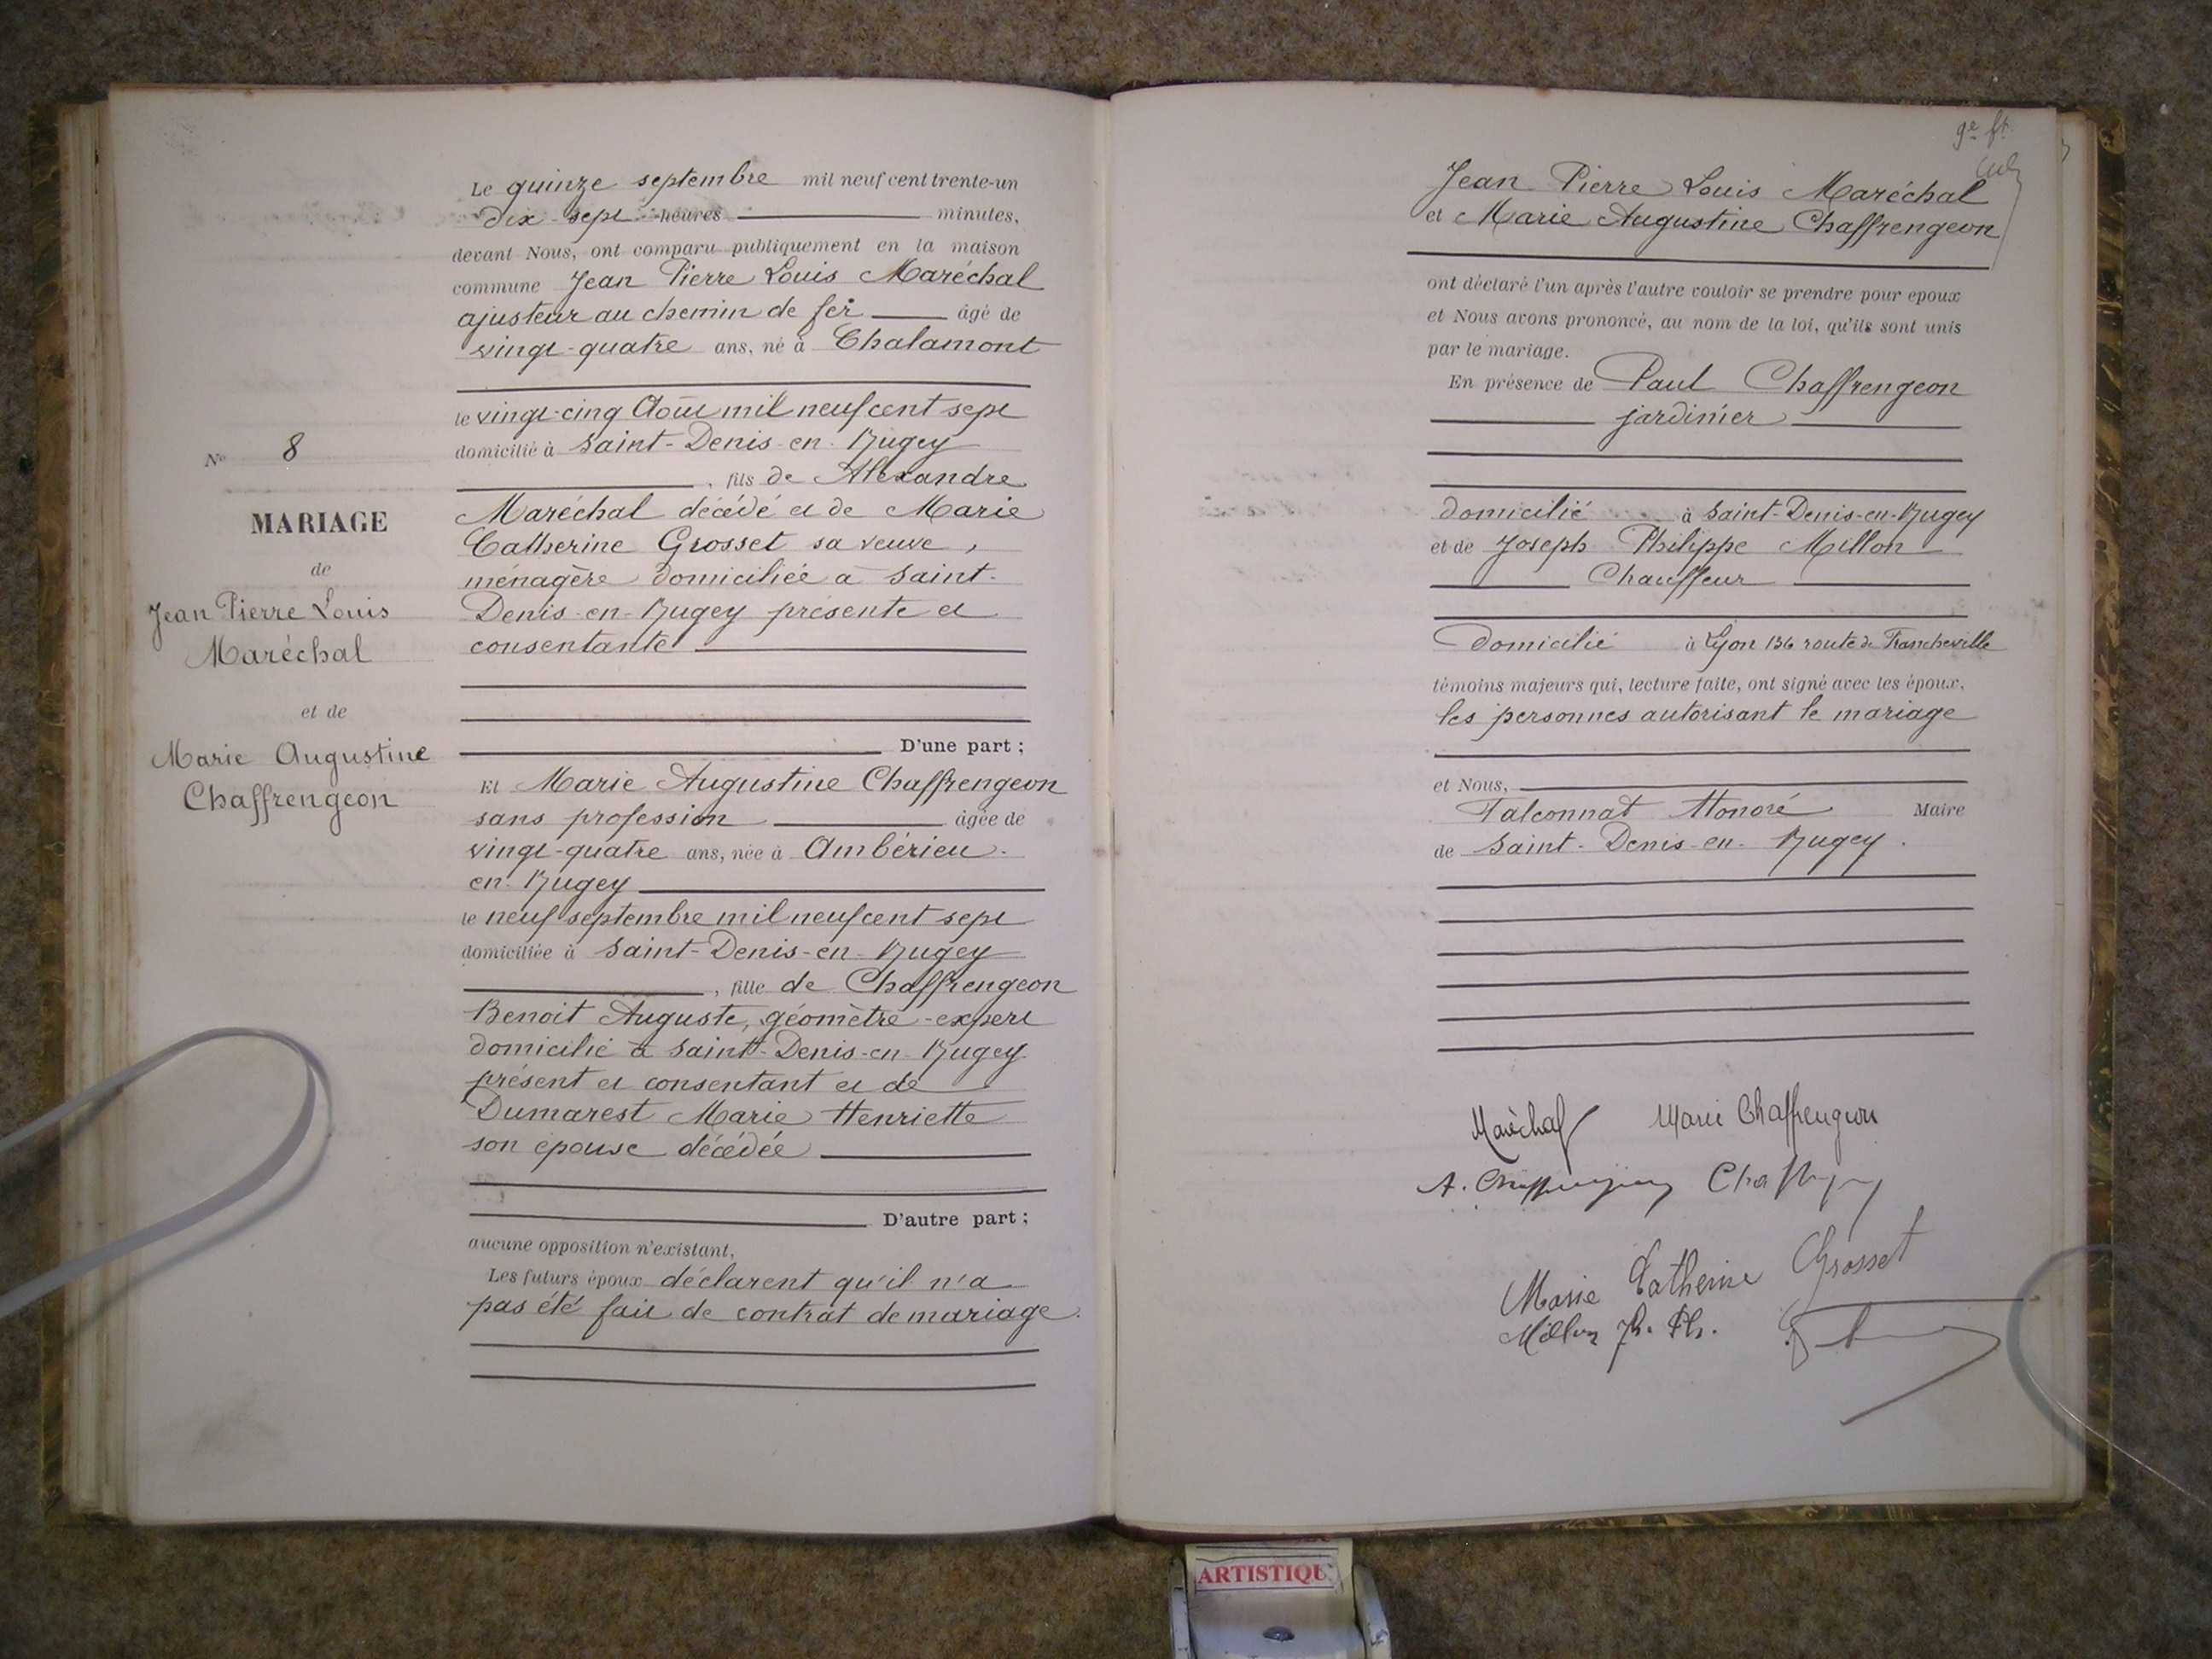 N° 8
MARIAGE
de
Jean Pierre Louis
Maréchal
et de
Marie Augustine
Chaffrengeon
Le quinze septembre mil neuf cent trente-un
dix-sept heures minutes,
devant Nous, ont comparu publiquement en la maison
commune Jean Pierre Louis Maréchal
ajusteur au chemin de fer âgé de
vingt-quatre ans, né à Chalamont
le vingt-cinq Août mil neuf cent sept
domicilié à Saint-Denis-en-Bugey
, fils de Alexandre
Maréchal décédé et de Marie
Catherine Grosset sa veuve,
ménagère domiciliée à Saint-
Denis-en-Bugey présente et
consentante
D'une part ;
Et Marie Augustine Chaffrengeon
sans profession âgée de
vingt-quatre ans, née à Ambérieu-
en-Bugey
le neuf septembre mil neuf cent sept
domiciliée à Saint-Denis-en-Bugey
, fille de Chaffrengeon
Benoit Auguste, géomètre-expert
domicilié à Saint-Denis-en-Bugey
présent et consentant et de
Dumarest Marie Henriette
son épouse décédée
D'autre part ;
aucune opposition n'existant,
Les futurs époux déclarent qu'il n'a
pas été fait de contrat de mariage.
Jean Pierre Louis Maréchal
et Marie Augustine Chaffrengeon
ont déclaré l'un après l'autre vouloir se prendre pour epoux
et Nous avons prononcé, au nom de la loi, qu'ils sont unis
par le mariage.
En présence de Paul Chaffrengeon
jardinier
domicilié à Saint-Denis-en-Bugey
et de Joseph Philippe Millon
Chauffeur
Domicilié à Lyon 136 route de Francheville
témoins majeurs qui, lecture faite, ont signé avec les époux,
les personnes autorisant le mariage
et Nous,
Falconnat Honoré Maire
de Saint-Denis-en-Bugey.
Maréchal Marie Chaffrengeon
A. Chaffrengeon
Marie Catherine Grosset
Millon Jh. Ph.
ARTISTIQU